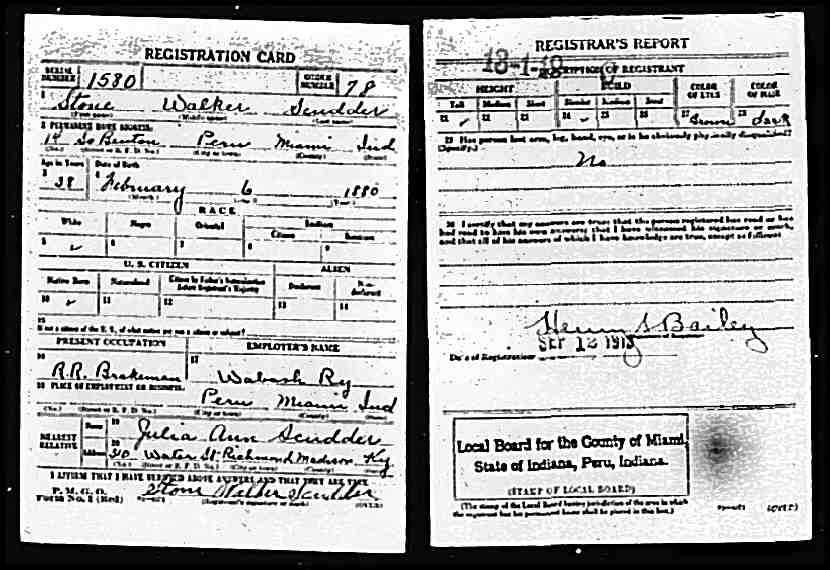 REGISTRATION CARD
SERIAL NUMBER 1580 ORDER NUMBER 78
1 Stone Walker Scudder
(First name) (Middle name) (Last name)
2 PERMANENT HOME ADDRESS:
14 So Benton Peru Miami Ind
(No.) (Street or R. F. D. No.) (City or town) (County) (State)
Age in Years Date of Birth
3 38 4 February 6 1880
(Month) (Year)
RACE
White Negro Oriental Indian
Citizen
5 ✓ 6 7 8 9
U. S. CITIZEN ALIEN
Native Born Naturalized Citizen by Father's Naturalization Before Registrant's Majority Declarant Non-declarant
10 ✓ 11 12 13 14
15
If not a citizen of the U. S., of what nation are you a citizen or subject?
PRESENT OCCUPATION EMPLOYER'S NAME
16 R.R. Brakeman 17 Wabash Ry
18 PLACE OF EMPLOYMENT OR BUSINESS:
Peru Miami Ind
(No.) (Street or R. F. D. No.) (City or town) (County) (State)
NEAREST RELATIVE
Name 19 Julia Ann Scudder
Address 20 Water St Richmond Madison Ky
(No.) (Street or R. F. D. No.) (City or town) (County) (State)
I AFFIRM THAT I HAVE VERIFIED ABOVE ANSWERS AND THAT THEY ARE TRUE
P. M. G. O.
Form No. 1 (Red) Stone Walker Scudder
(Registrant's signature or mark) (OVER)
REGISTRAR'S REPORT
DESCRIPTION OF REGISTRANT
HEIGHT BUILD COLOR OF EYES COLOR OF HAIR
Tall Medium Short Slender Medium Stout
21 ✓ 22 23 24 ✓ 25 26 27 Brown 28 Dark
29 Has person lost arm, leg, hand, eye, or is he obviously physically disqualified?
(Specify.)
No
30 I certify that my answers are true; that the person registered has read or has
had read to him his own answers; that I have witnessed his signature or mark,
and that all of his answers of which I have knowledge are true, except as follows:
Henry S Bailey
Date of Registration SEP 12 1918
Local Board for the County of Miami,
State of Indiana, Peru, Indiana.
(STAMP OF LOCAL BOARD)
(The stamp of the Local Board having jurisdiction of the area in which
the registrant has his permanent home shall be placed in this box.)
(OVER)